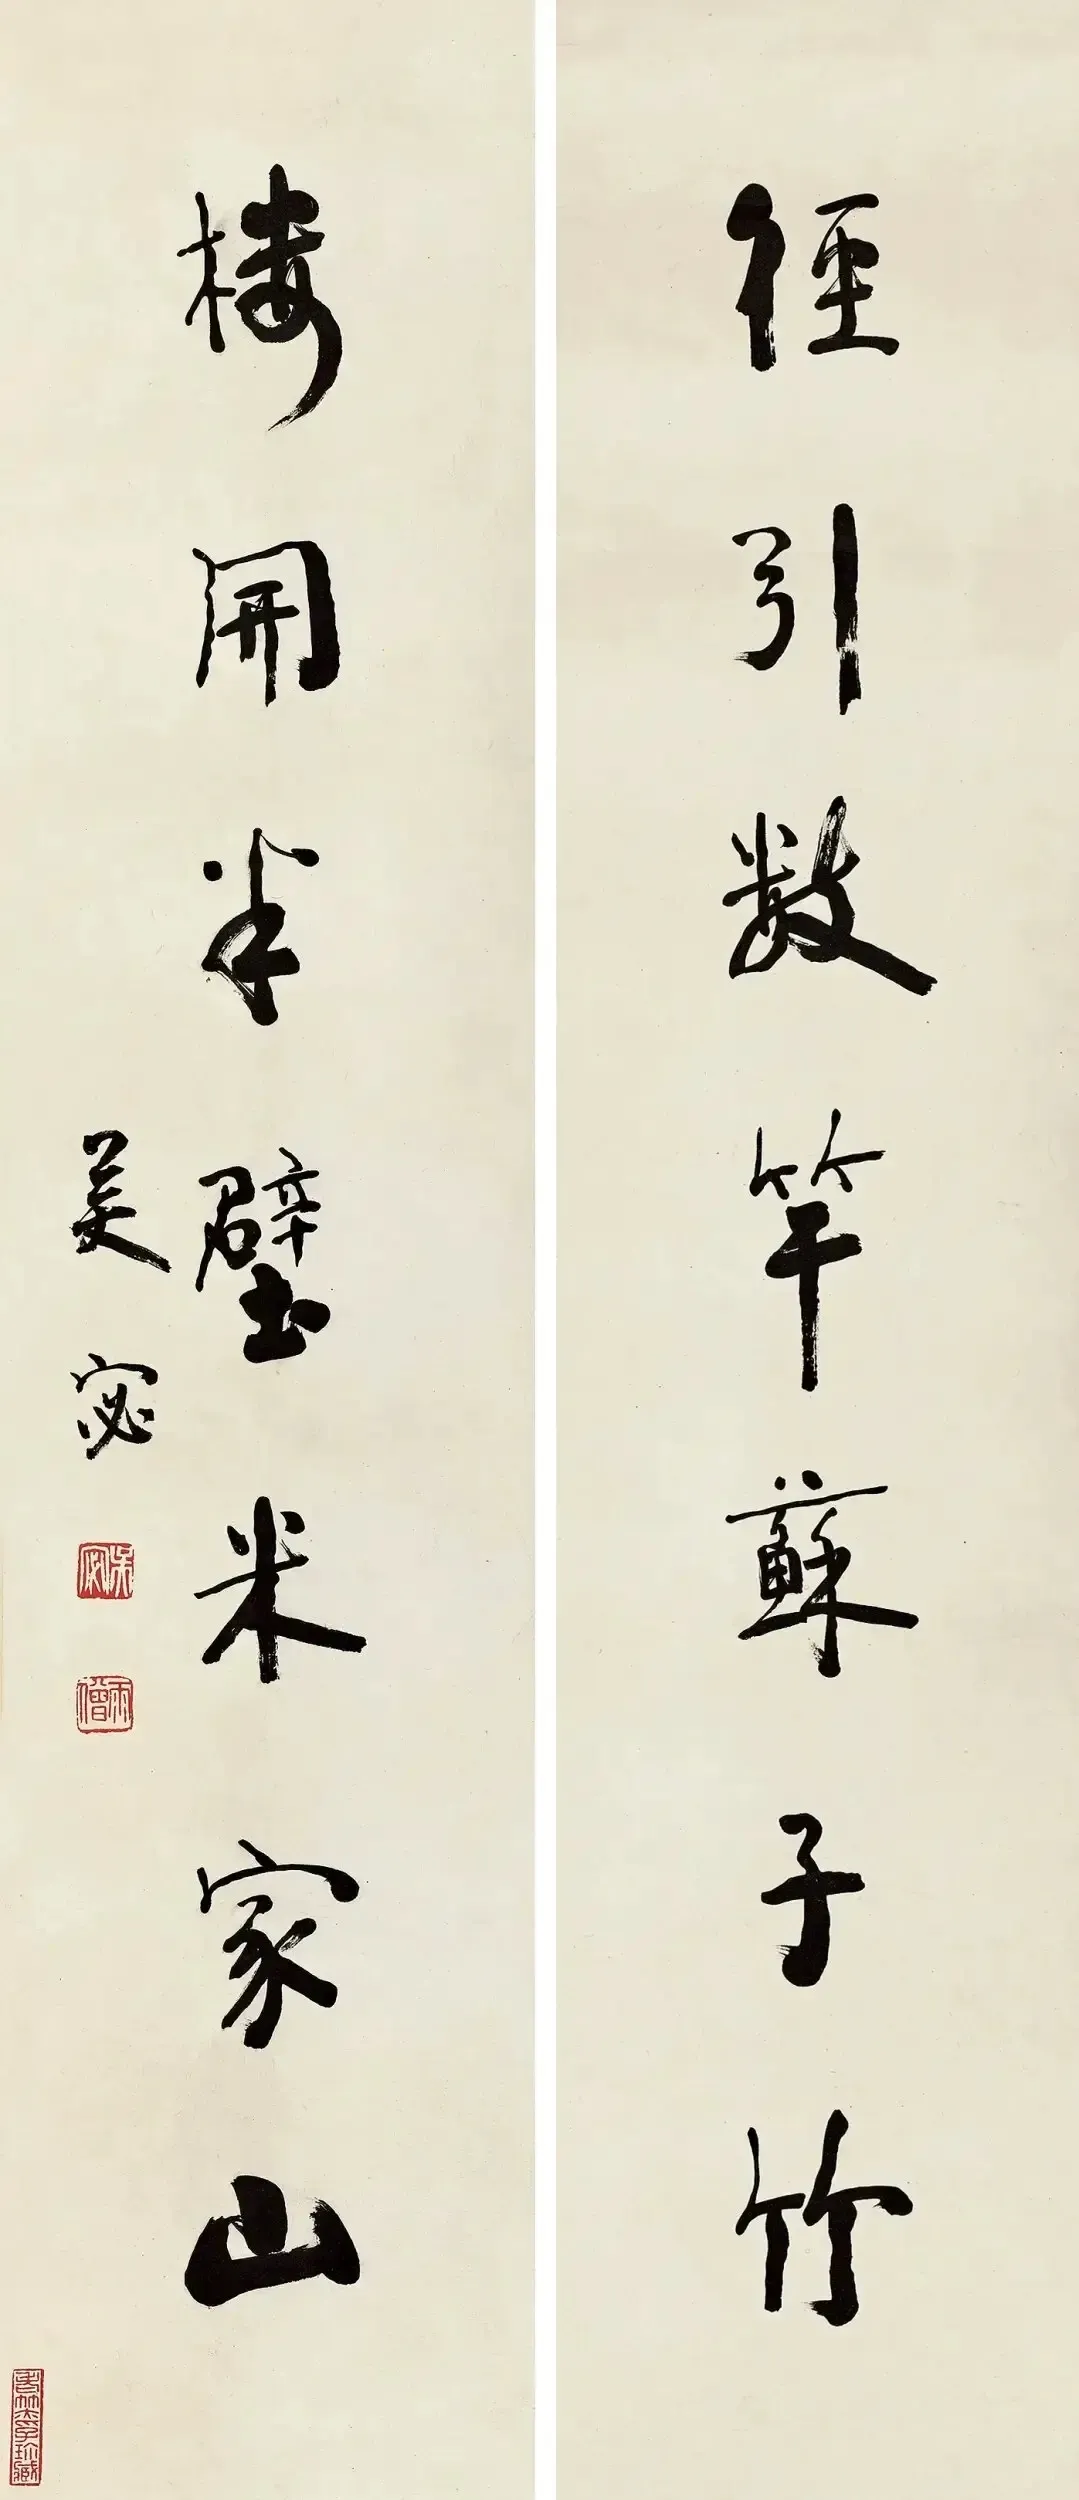 徑引數竿蘇子竹
樓開半壁米家山
吴宓
吴宓
雨僧